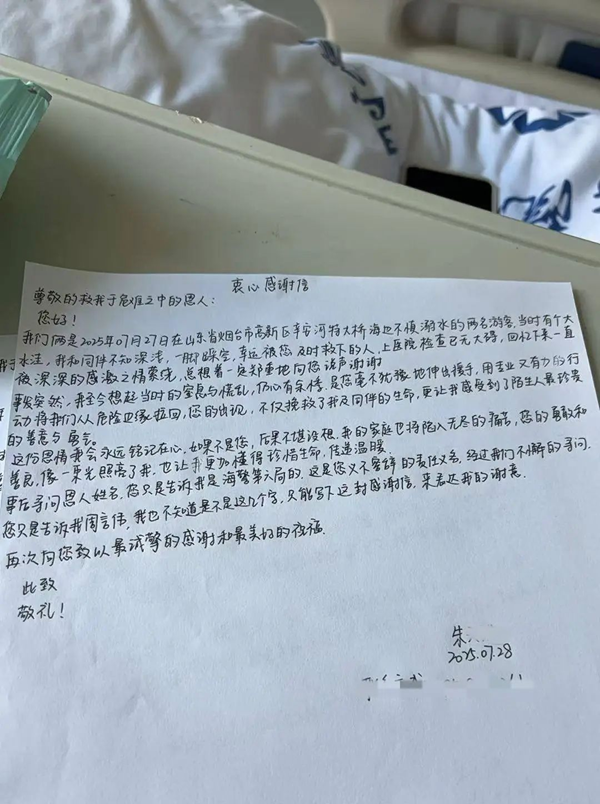 衷心感谢信
尊敬的救我于危难之中的恩人：
您好！
我们俩是2025年07月27日在山东省烟台市高新区辛安河特大桥海边不慎溺水的两名游客，当时有个大
于水洼，我和同伴不知深浅，一脚踩空，幸运被您及时救下的人，上医院检查已无大碍，回忆下来一直
被深深的感激之情萦绕，总想着一定郑重地向您说声谢谢
事发突然，我至今想起当时的窒息与慌乱，仍心有余悸，是您毫不犹豫地伸出援手，用专业又有力的行
动将我们从危险边缘拉回，您的出现，不仅挽救了我及同伴的生命，更让我感受到了陌生人最珍贵
的善意与勇气。
这份恩情我会永远铭记在心，如果不是您，后果不堪设想，我的家庭也将陷入无尽的痛苦，您的勇敢和
善良，像一束光照亮了我，也让我更加懂得珍惜生命，传递温暖。
事后寻问恩人姓名，您只是告诉我是海警第六局的，这是您义不容辞的责任义务，经过我们不懈的寻问，
您只是告诉我周言伟，我也不知道是不是这几个字，只能写下这封感谢信，来表达我的谢意。
再次向您致以最诚挚的感谢和最美好的祝福.
此致
敬礼！
朱
2025.07.28